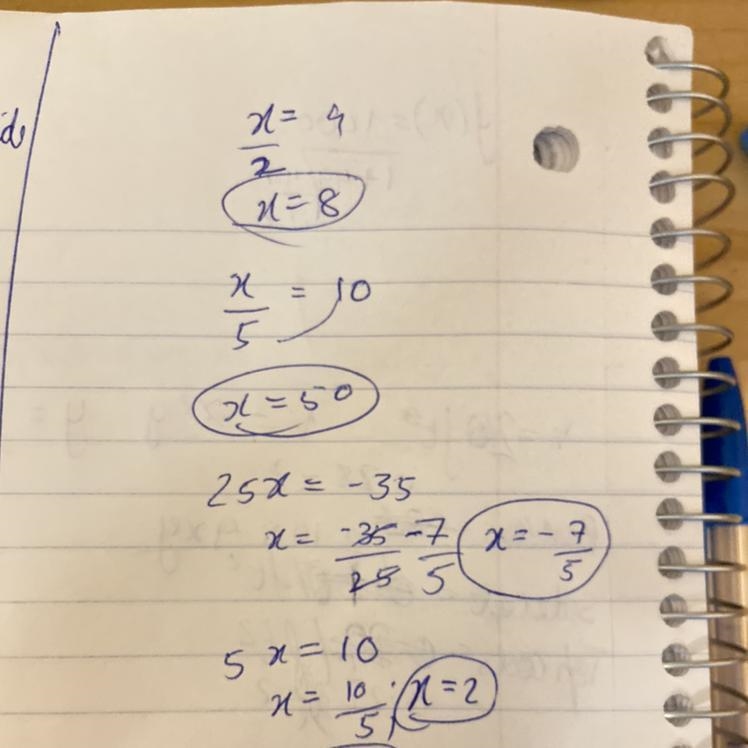 d
x/2 = 4
x = 8
x/5 = 10
x = 50
25x = -35
x = -35/25 -7/5 x = -7/5
5 x = 10
x = 10/5 x = 2